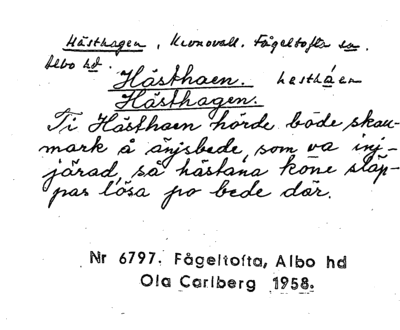 Hästhagen, Kronovall. Fågeltofta sn.
Albo hd.
Hästhaen. hestháen
Hästhagen.
Ti Hästhaen hörde bode skau-
mark å änjsbede, som va inj-
järad, så hästana kone släp-
pas lösa po bede där.
Nr 6797. Fågeltofta, Albo hd
Ola Carlberg 1958.